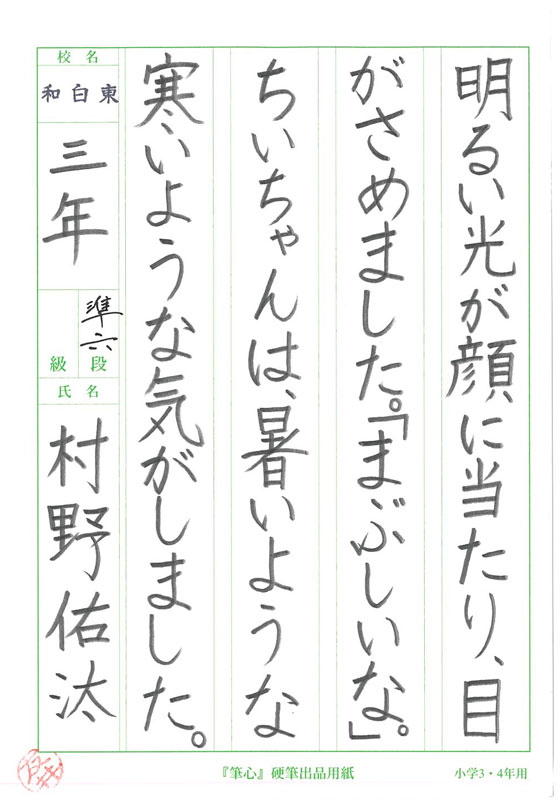 明るい光が顔に当たり、目
がさめました。「まぶしいな」。
ちいちゃんは、暑いような
寒いような気がしました。
校名
和白東
三年
準六
段
級
氏名
村野佑汰
『筆心』硬筆出品用紙
小学3・4年用